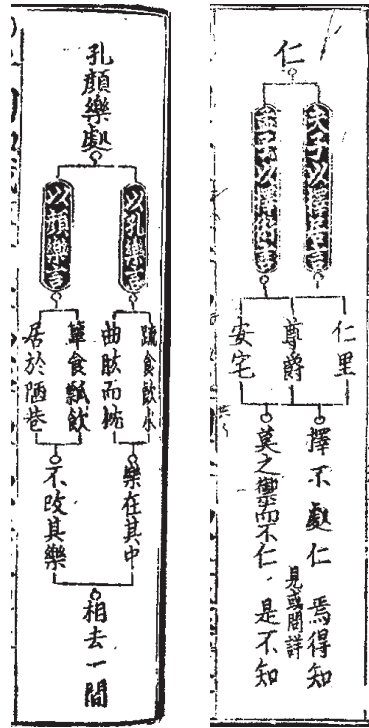 仁
夫子以擇居言
孟子以擇術言
仁里
尊爵
安宅
擇不處仁焉得知
見或問詳
莫之禦而不仁是不知
孔顏樂處
以孔樂言
以顏樂言
疏食飲水
曲肱而枕
簞食瓢飲
居於陋巷
樂在其中
不改其樂
相去一間